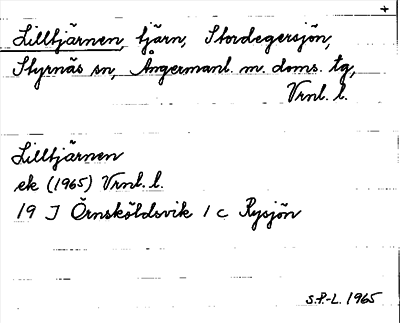 +
Lilltjärnen, tjärn, Stordegersjön,
Styrnäs sn, Ångermanl. m. doms. tg,
Vrnl. l.
Lilltjärnen
ek (1965) Vrnl. l.
19 J Örnsköldsvik 1 c Rysjön
S.P.-L. 1965